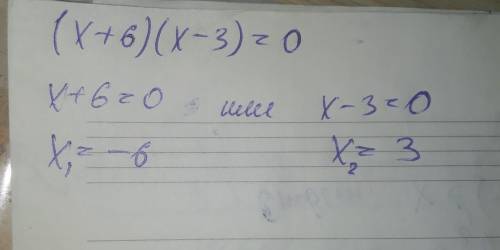 (x+6)(x-3)=0
x+6=0 или x-3=0
x₁=-6 x₂=3